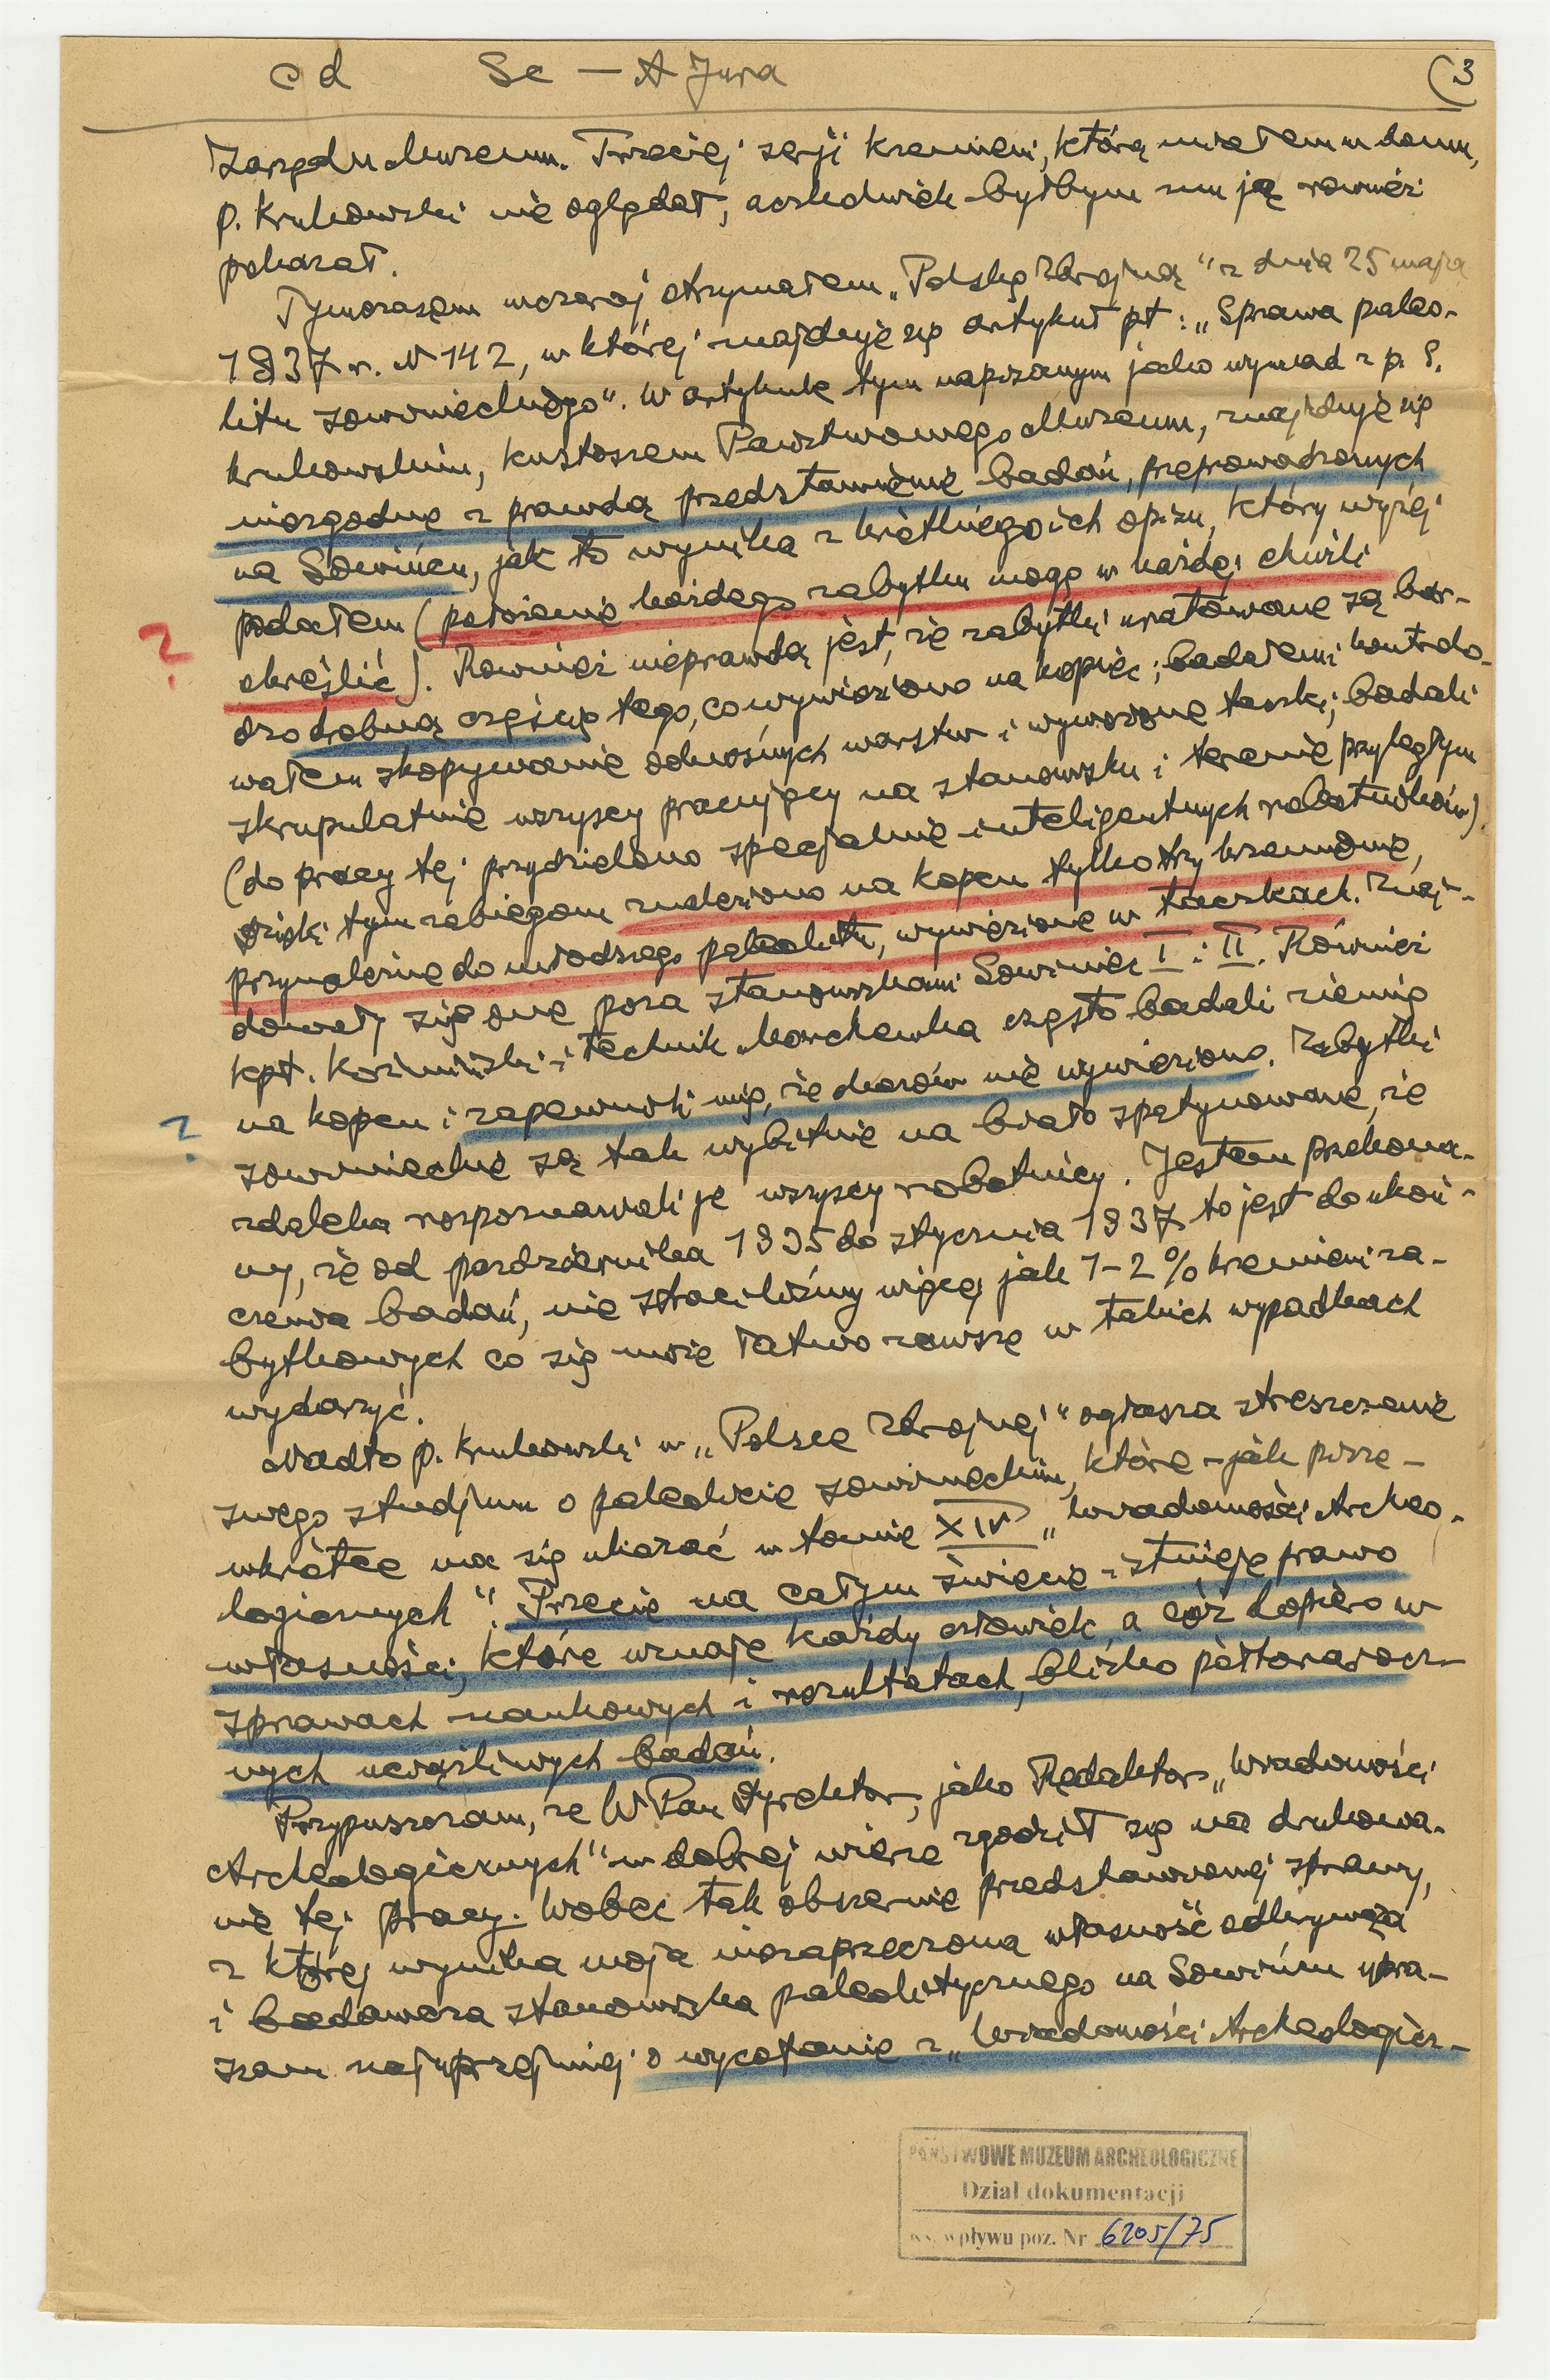 cd Sc — A Jura (3
Zarządu Muzeum. Trzeciej serji krzemieni, którą miałem w domu,
p. Krukowski nie oglądał, aczkolwiek byłbym mu ją również
pokazał.
Tymczasem wczoraj otrzymałem „Polskę Zbrojną" z dnia 25 maja
1937 r. N 142, w której znajduje się artykuł pt: „Sprawa paleo-
litu sowinieckiego". W artykule tym napisanym jako wywiad z p. S.
Krukowskim, kustoszem Państwowego Muzeum, znajduje się
niezgodne z prawdą przedstawienie badań, przeprowadzonych
na Sowińcu, jak to wynika z ich opisu, który wyżej
podałem (położenie każdego zabytku mogę w każdej chwili
określić). Również nieprawdą jest, że zabytki uratowane są bar-
dzo drobną częścią tego, co wywieziono na kopiec; badałem i kontrolo-
wałem skopywanie odnośnych warstw i wywożone taczki; badali
skrupulatnie wszyscy pracujący na stanowisku i terenie przyległym
(do pracy tej przydzielono specjalnie inteligentnych robotników).
Dzięki tym zabiegom znaleziono na kopcu tylko trzy krzemienie,
przynależne do młodszego paleolitu, wywiezione w taczkach. Znaj-
dowały się one poza stanowiskami Sowiniec I i II. Również
kpt. Koziński i technik Marchewka często badali ziemię
na kopcu i zapewnili mię, że okazów nie wywieziono. Zabytki
sowinieckie są tak wybitnie na biało spatynowane, że
zdaleka rozpoznawali je wszyscy robotnicy. Jestem przekona-
ny, że od października 1935 do stycznia 1937 to jest do ukoń-
czenia badań, nie straciliśmy więcej jak 1-2 % krzemieni za-
bytkowych co się może łatwo zawsze w takich wypadkach
wydarzyć.
Nadto p. Krukowski w „Polsce Zbrojnej" ogłasza streszczenie
swego studjum o paleolicie sowinieckim, które – jak pisze –
wkrótce ma się ukazać w tomie XIV „Wiadomości Archeo-
logicznych". Przecie na całym świecie istnieje prawo
własności, które uznaje każdy człowiek, a cóż dopiero w
sprawach naukowych i rezultatach, blisko półtorarocz-
nych uciążliwych badań.
Przypuszczam, że WPan Dyrektor, jako Redaktor „Wiadomości
Archeologicznych" w dobrej wierze zgodził się na drukowa-
nie tej pracy. Wobec tak obszernie przedstawionej sprawy,
z której wynika moja niezaprzeczona własność odkrywcza
i badawcza stanowiska paleolitycznego na Sowińcu upra-
szam najuprzejmiej o wycofanie z „Wiadomości Archeologicz-
?
?
PAŃSTWOWE MUZEUM ARCHEOLOGICZNE
Dział dokumentacji
ks. wpływu poz. Nr 6205/75